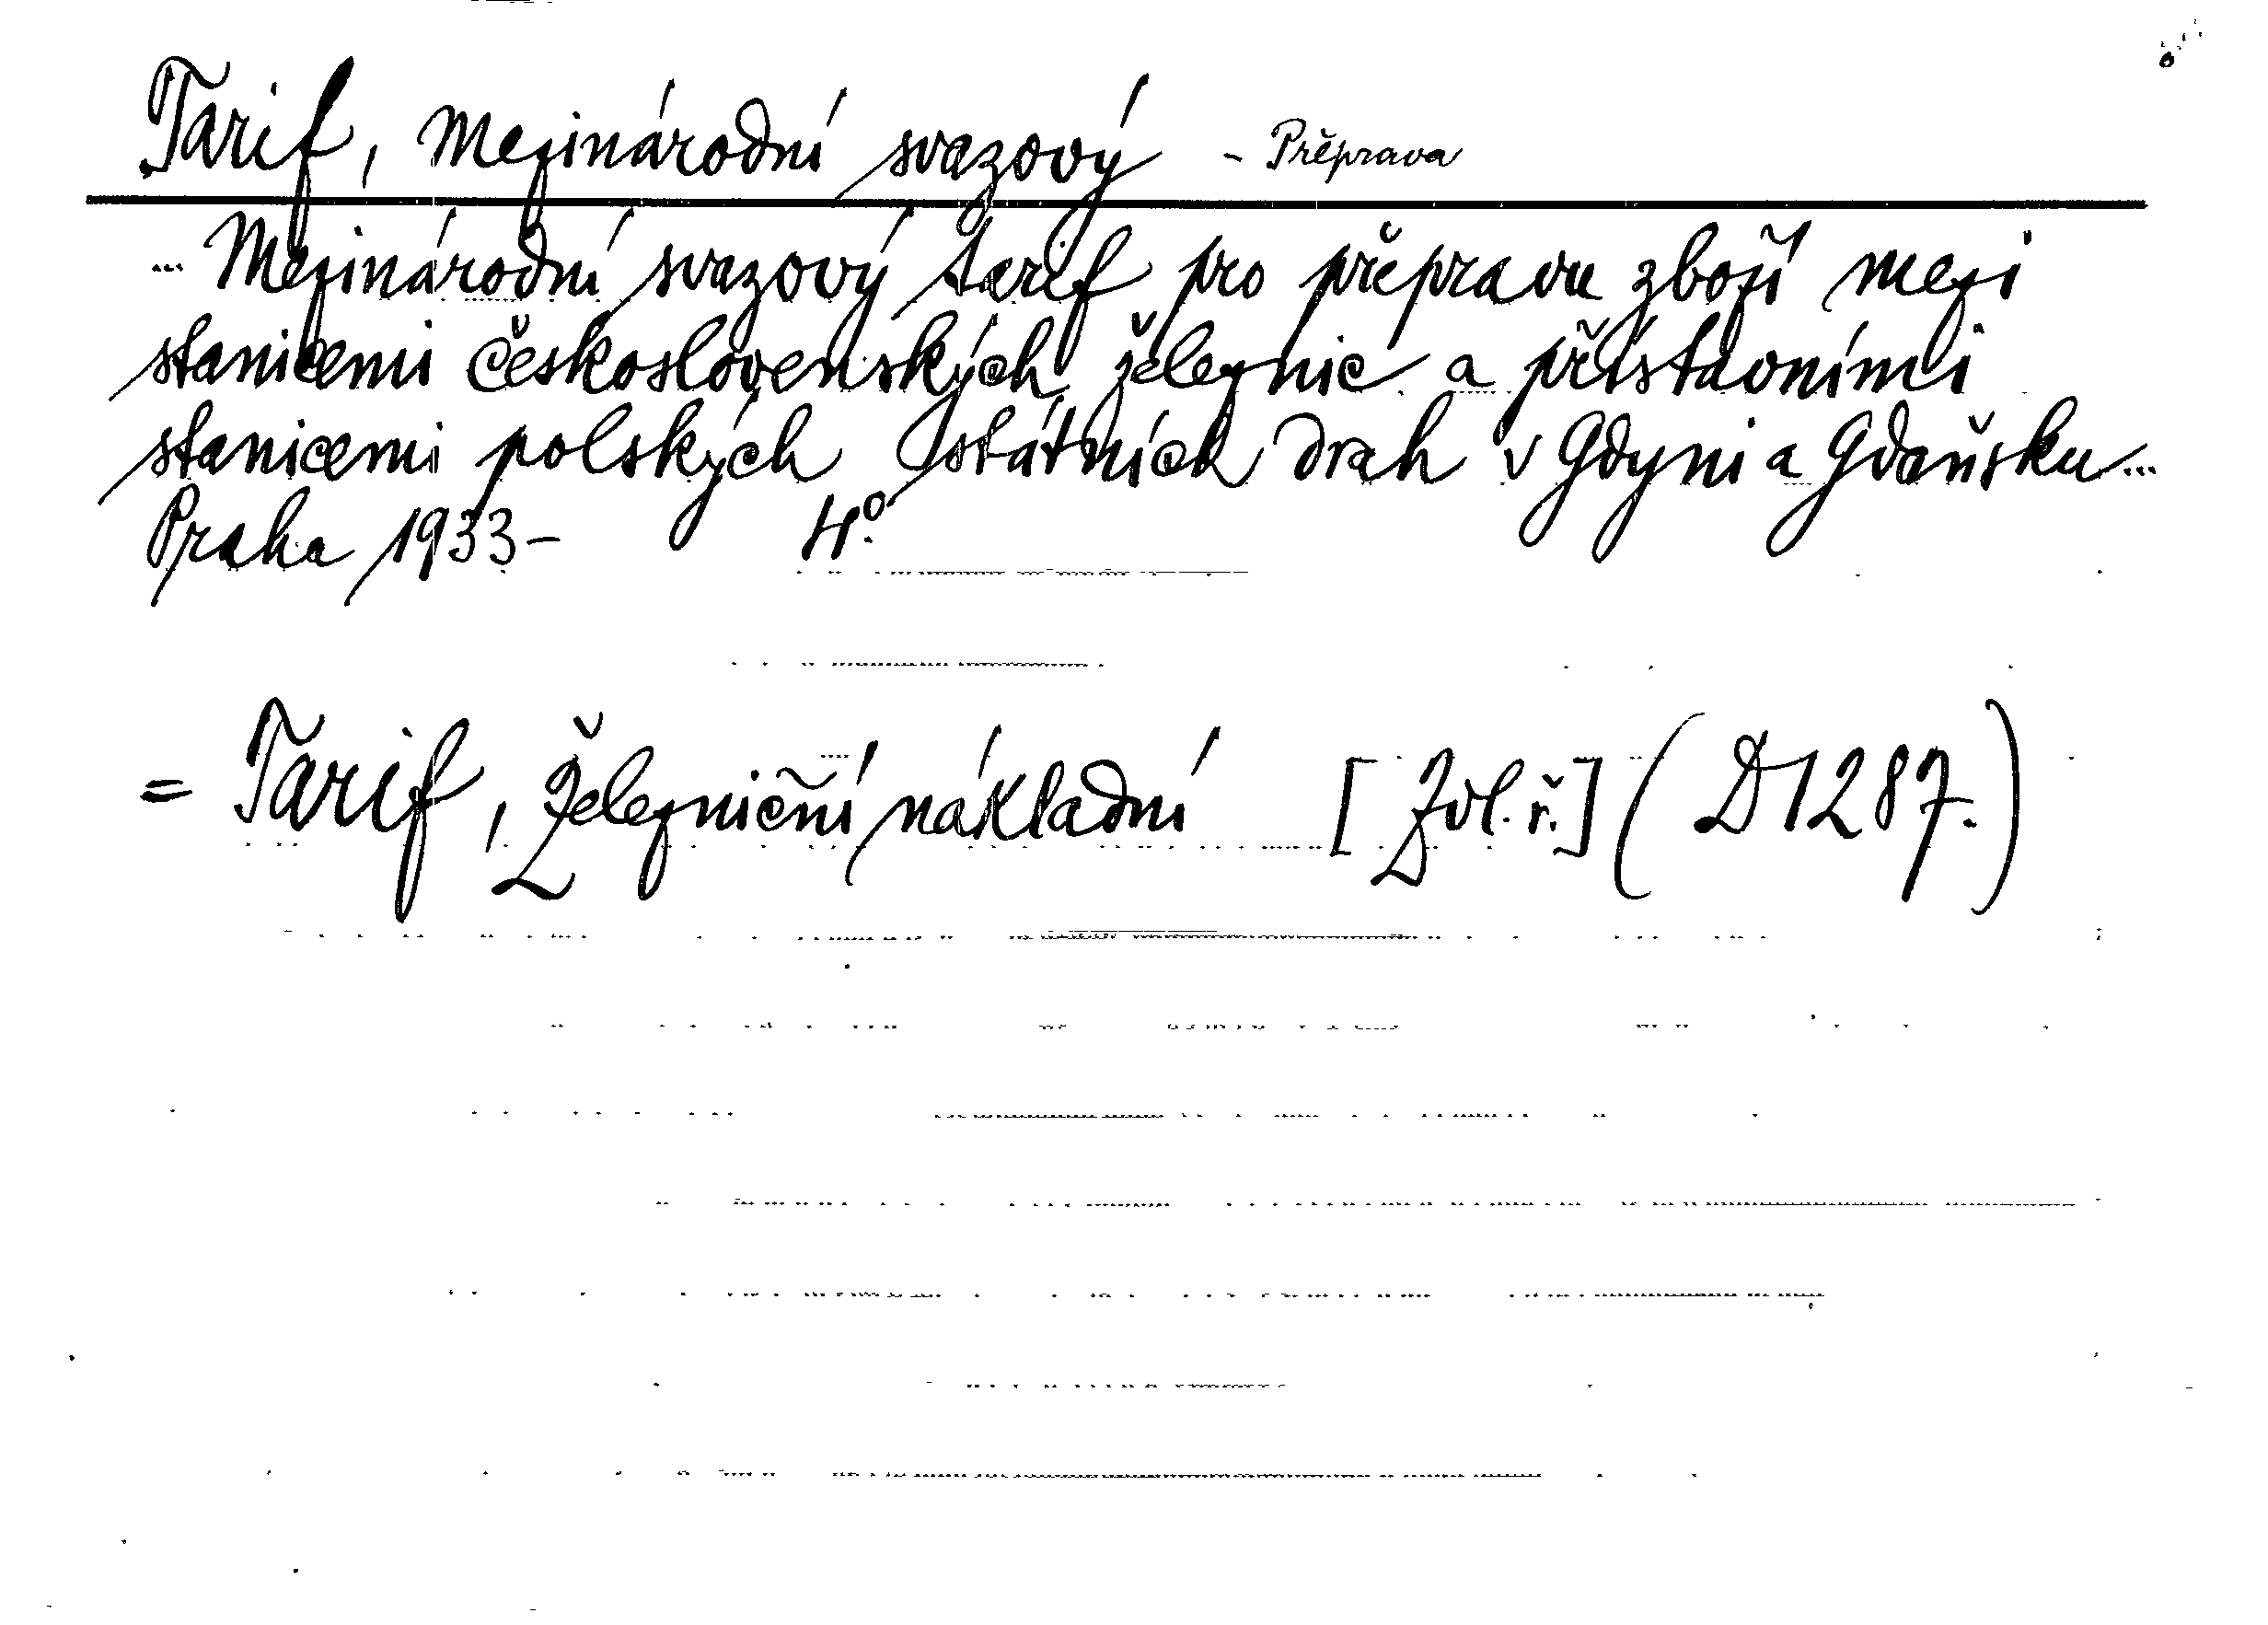 Tarif, mezinárodní svazový - Přeprava
... Mezinárodní svazový tarif pro přepravu zboží mezi
stanicemi československých železnic a přístavními
stanicemi polských státních drah v Gdyni a Gdaňsku ...
Praha 1933- 4°.
= Tarif, Železniční nákladní [Zvl. ř.] (D1287.)